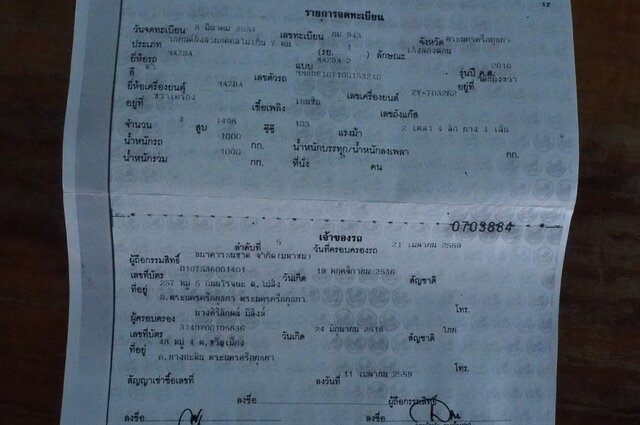 12
รายการจดทะเบียน
วันจดทะเบียน 8 มีนาคม 2554 เลขทะเบียน 943 จังหวัด พระนครศรีอยุธยา
ประเภท รถยนต์นั่งส่วนบุคคลไม่เกิน 7 คน (รย. 1) ลักษณะ
ยี่ห้อรถ MAZDA แบบ MAZDA 2 รุ่นปี ค.ศ. 2010
สี เลขตัวรถ อยู่ที่
ยี่ห้อเครื่องยนต์ MAZDA เลขเครื่องยนต์ ZY-703262
อยู่ที่ ขวาเครื่อง เชื้อเพลิง เบนซิน เลขถังแก๊ส
จำนวน 4 สูบ 1498 ซีซี 103 แรงม้า 2 เพลา 4 ล้อ ยาง 4 เส้น
น้ำหนักรถ 1000 กก. น้ำหนักบรรทุก/น้ำหนักลงเพลา กก.
น้ำหนักรวม 1000 กก. ที่นั่ง 5 คน
0703884
เจ้าของรถ
ลำดับที่ 5 วันที่ครอบครองรถ 21 เมษายน 2559
ผู้ถือกรรมสิทธิ์ ธนาคารธนชาต จำกัด (มหาชน)
เลขที่บัตร 0107536001401 วันเกิด 19 พฤศจิกายน 2536 สัญชาติ
ที่อยู่ 257 หมู่ 5 ถนนโรจนะ ต.ไผ่ลิง
อ.พระนครศรีอยุธยา พระนครศรีอยุธยา โทร.
ผู้ครอบครอง
เลขที่บัตร 3140700105836 วันเกิด 24 มิถุนายน 2518 สัญชาติ ไทย
ที่อยู่ 48 หมู่ 4 ต.ขวัญเมือง
อ.บางปะหัน พระนครศรีอยุธยา โทร.
สัญญาเช่าซื้อเลขที่ ลงวันที่ 11 เมษายน 2559
ลงชื่อ ผู้ถือกรรมสิทธิ์
ลงชื่อ ลงชื่อ